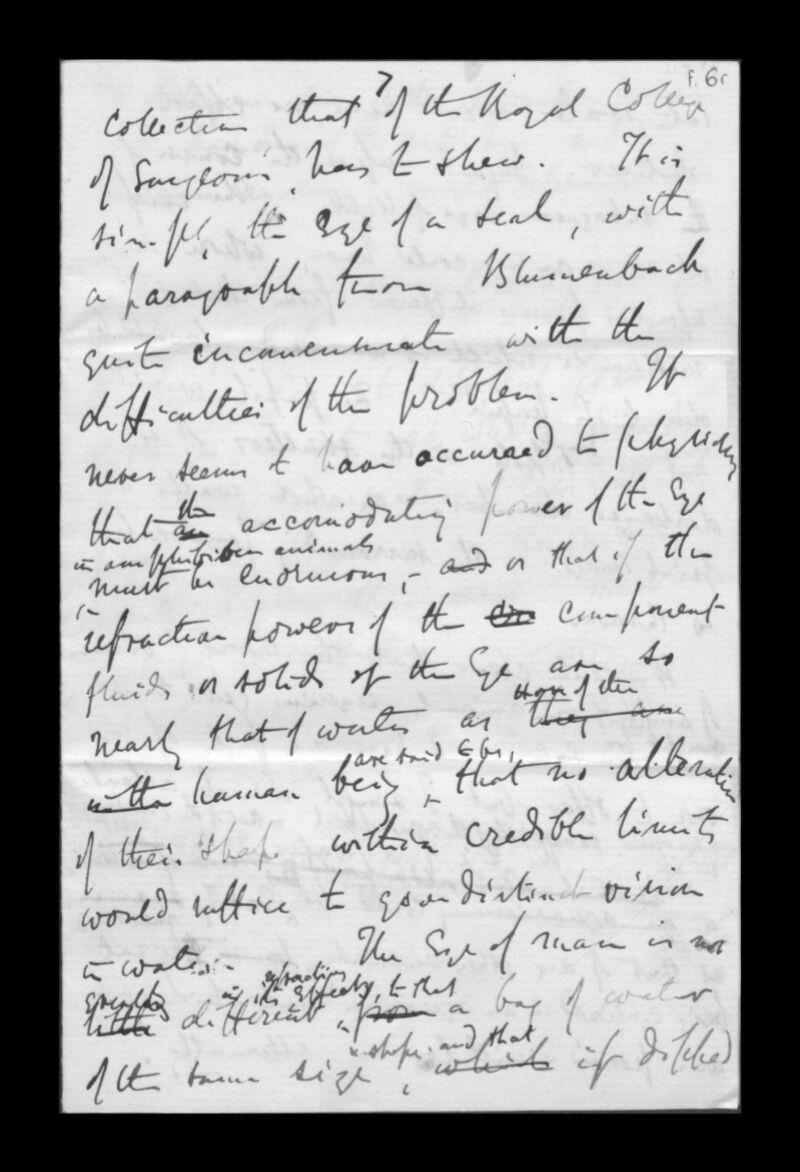 f. 6r
7
Collection that of the Royal College
of Surgeons, has to shew. It is
simply the Eye of a seal, with
a paragraph from Blumenbach
quite incommensurate with the
difficulties of the problem. It
never seems to have occurred to physiology
that an the accomodating power of the Eye
in amphibious animals
must be enormous, - and or that if the
refraction powers of the component
fluids or solids of the Eye are so
nearly that of water as they are those of the
in the human being are said to be, that no alteration
of their shape within credible limits
would suffice to give distinct vision
in water. The Eye of man is not
little greatly different in its refraction effects, from to that a bag of water
of the same size & shape and that, which if dipped